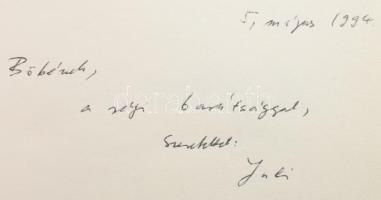 5, május 1994.
Bőbének,
a régi barátsággal,
szeretettel:
Juli